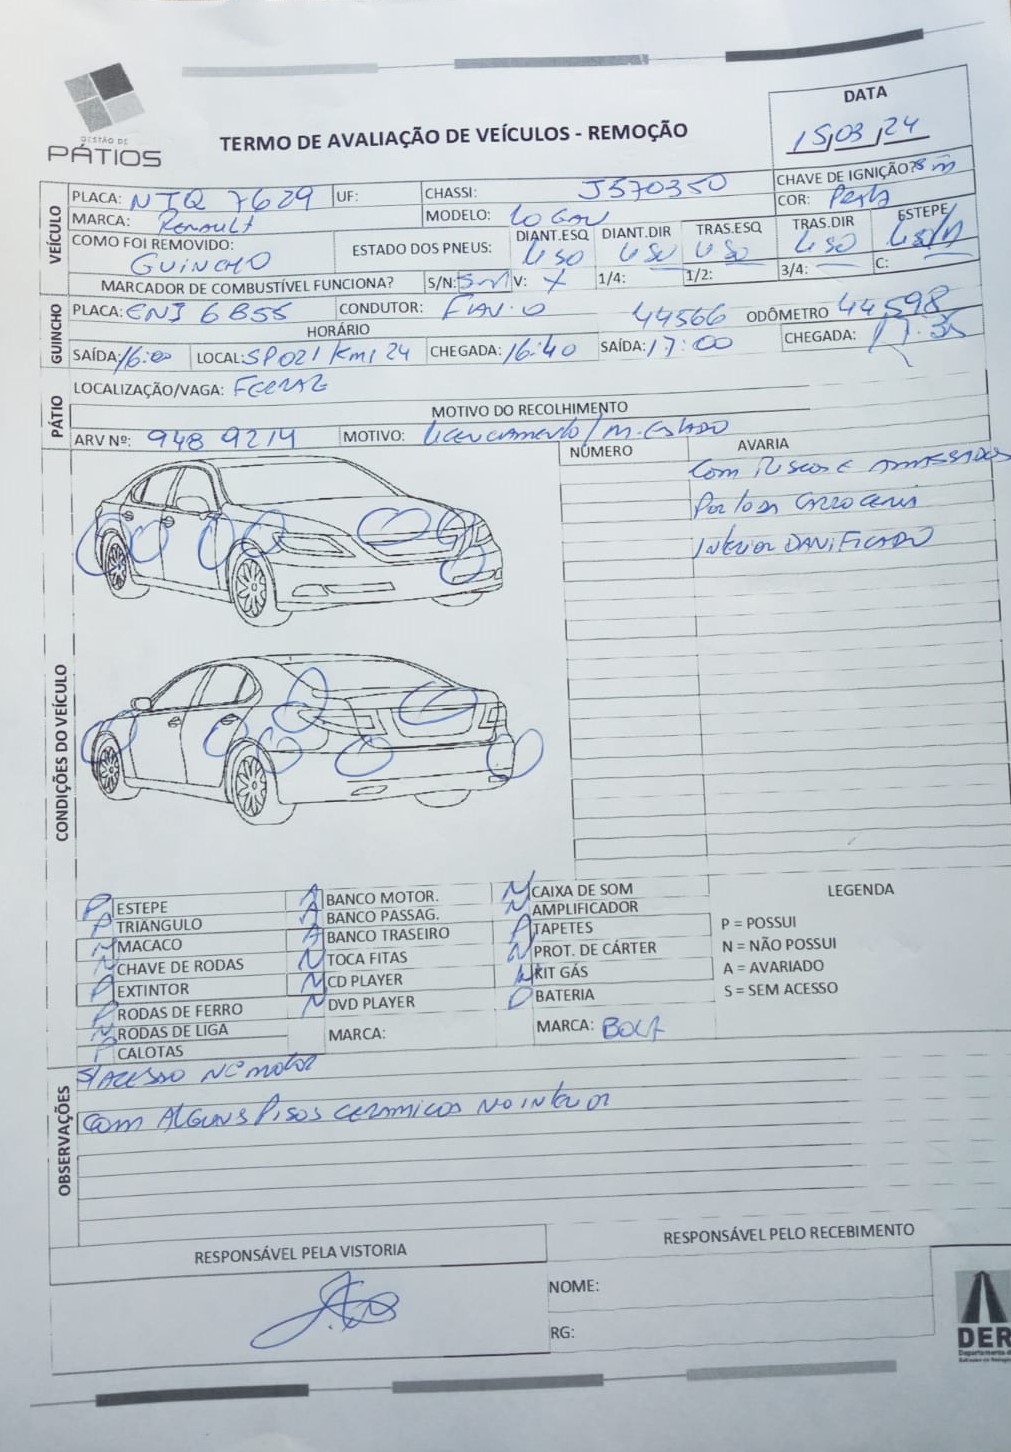 GESTÃO DE
PÁTIOS
TERMO DE AVALIAÇÃO DE VEÍCULOS - REMOÇÃO
DATA
15/03/24
VEÍCULO
PLACA: 7629 UF: CHASSI: J570350 CHAVE DE IGNIÇÃO?
MARCA: Renault MODELO: LOGAN COR:
COMO FOI REMOVIDO: GUINCHO
ESTADO DOS PNEUS: DIANT.ESQ USO DIANT.DIR USO TRAS.ESQ USO TRAS.DIR USO ESTEPE
MARCADOR DE COMBUSTÍVEL FUNCIONA? S/N: Sm V: X 1/4: 1/2: 3/4: C:
GUINCHO
PLACA: ENJ 6B55 CONDUTOR: FLAVIO 44566 ODÔMETRO 44598
HORÁRIO
SAÍDA: 16:00 LOCAL: SP021 Km 24 CHEGADA: 16:40 SAÍDA: 17:00 CHEGADA: 17:35
PÁTIO
LOCALIZAÇÃO/VAGA:
MOTIVO DO RECOLHIMENTO
ARV Nº: 948 9214 MOTIVO: Licenciamento / M. ESTADO
CONDIÇÕES DO VEÍCULO
NÚMERO AVARIA
Com Riscos E AMASSADOS
Por toda CARROCERIA
Interior DANIFICADO
P ESTEPE
P TRIÂNGULO
N MACACO
N CHAVE DE RODAS
P EXTINTOR
P RODAS DE FERRO
N RODAS DE LIGA
P CALOTAS
A BANCO MOTOR.
A BANCO PASSAG.
A BANCO TRASEIRO
N TOCA FITAS
N CD PLAYER
N DVD PLAYER
MARCA:
N CAIXA DE SOM
N AMPLIFICADOR
P TAPETES
N PROT. DE CÁRTER
N KIT GÁS
P BATERIA
MARCA:
LEGENDA
P = POSSUI
N = NÃO POSSUI
A = AVARIADO
S = SEM ACESSO
OBSERVAÇÕES
S/ACESSO Nº motor
COM ALGUNS PISOS CERAMICOS NO INTERIOR
RESPONSÁVEL PELA VISTORIA
RESPONSÁVEL PELO RECEBIMENTO
NOME:
RG:
DER